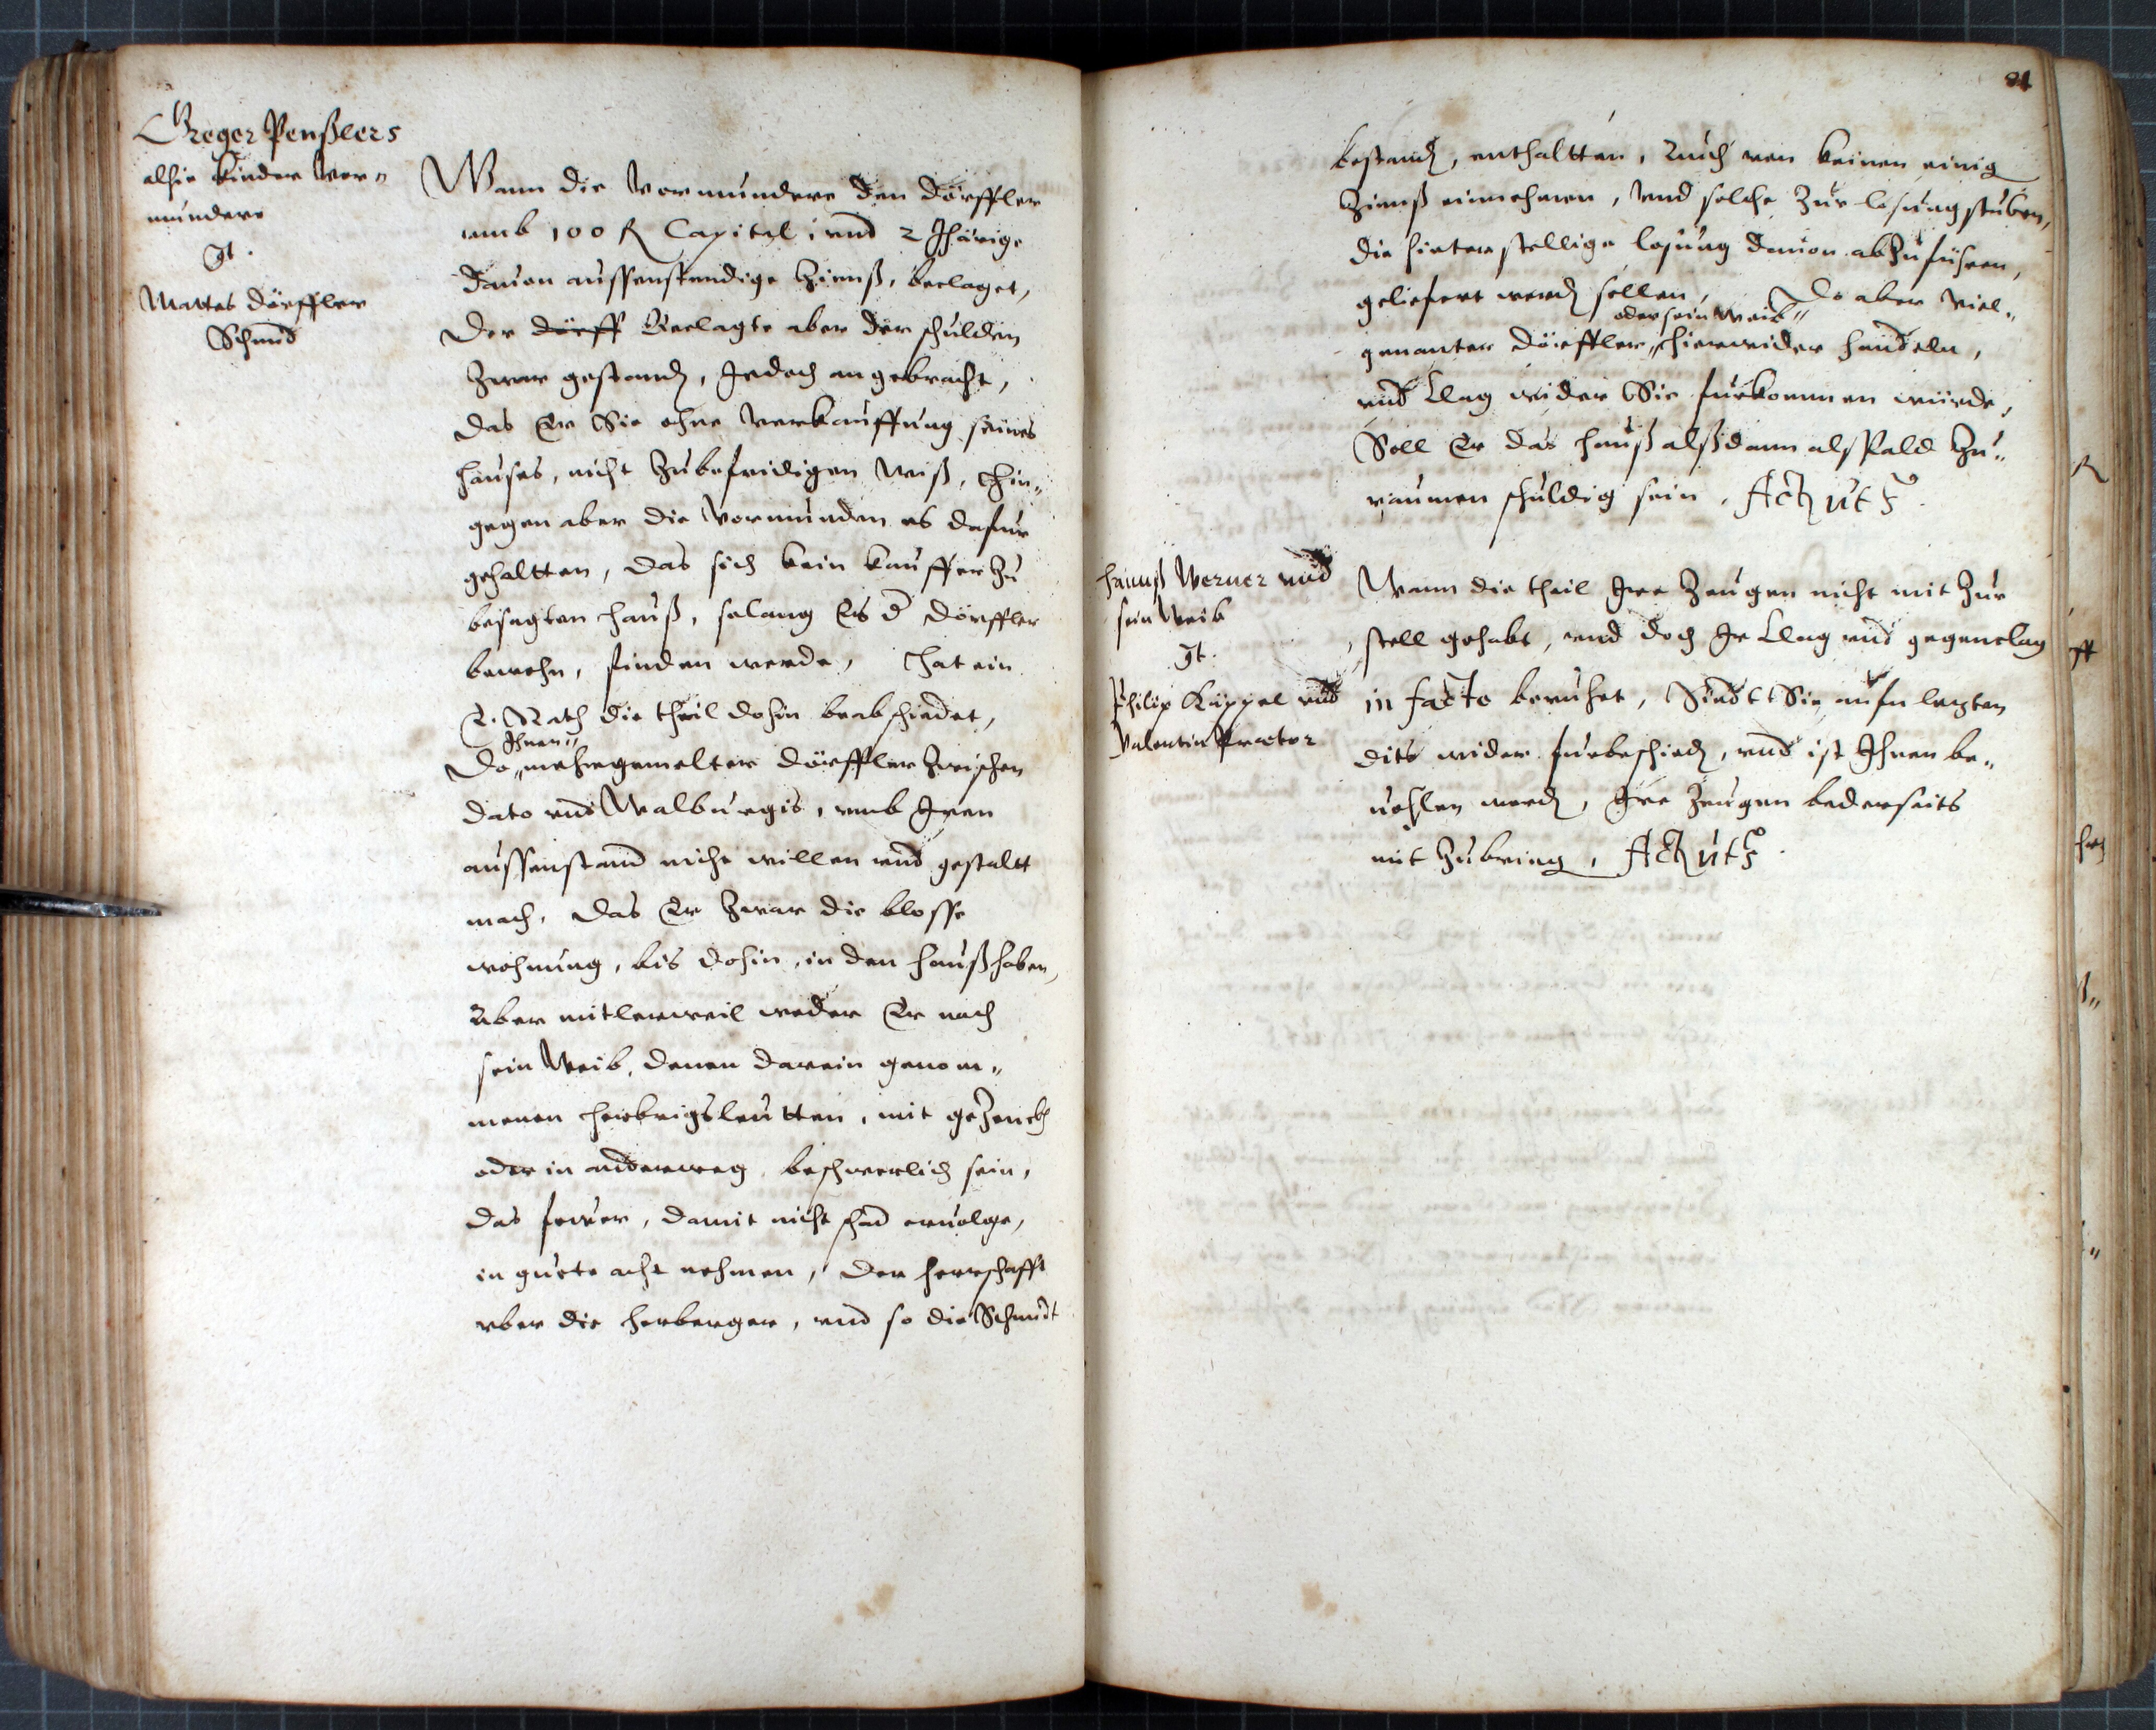 Greger Penßlers
alhie Kinder Vor„
mundere
gt.
Mattes Dörffler
Schmid
Wann die Vormundere den Dörffler
umb 100 fl Capital, vnd 2 Jhärige
dauon aussenstendige Zinnß, beclaget,
Der dörff Beclagte aber der schulden
Zwar gestand, Jedoch angebracht,
das Er Sie ohne Verkauffung seines
Hauses, nicht Zubefridigen Wiß, Hin„
gegen aber die Vormunden es dafur
gehaltten, das sich kein Kauffer Zu
besagten Hauß, solang Es d Dörffler
bewohn, finden werde, Hat ein
E. Rath die theil dohin beabschiedet,
Ihnen„
Do„ mehrgemelter Dörffler Zwischen
dato und Walburgis, umb Iren
aussenstand nicht willen und gestaltt
mach, Das Er Zwar die blosse
wohnung, bis dohin, in den Hauß haben,
Aber mitlerweil weder Er noch
sein Weib, denen darein genom„
menen Herbrigsleutten, mit geZenckh
oder in anderweg beschwerlich sein,
das fewer, damit nicht schad eruolge,
in guete acht nehmen, der Herrschafft
vber die Herberger, vnd so die Schmidt
84
bestand, enthaltten, Auch von keinen einig
Zinnß einnehmen, Vnd solche Zur losungstuben,
die hinterstellige losung dauon abZufüren,
geliefert werd sollen, Do aber Viel„
oder sein Weib„
genanter Dörffler„ hierwider handeln,
vnd Clag wider Sie furkommen würde,
Soll Er das Hauß alßdann alspald Zu„
raumen schuldig sein, Act ut s.
Hannß Werner und
sein Weib
gt.
Philip Küppel und
Valentin Praetor
Wann die theil Ire Zeugen nicht mit Zur
stell gehabt, vnd doch Ir Clag und gegenclag
in facto beruhet, Sindt Sie aufn letzten
dits wider furbeschied, vnd ist Ihnen be„
uohlen word, Ire Zeugen bederseits
mit Zubring, Act ut s.